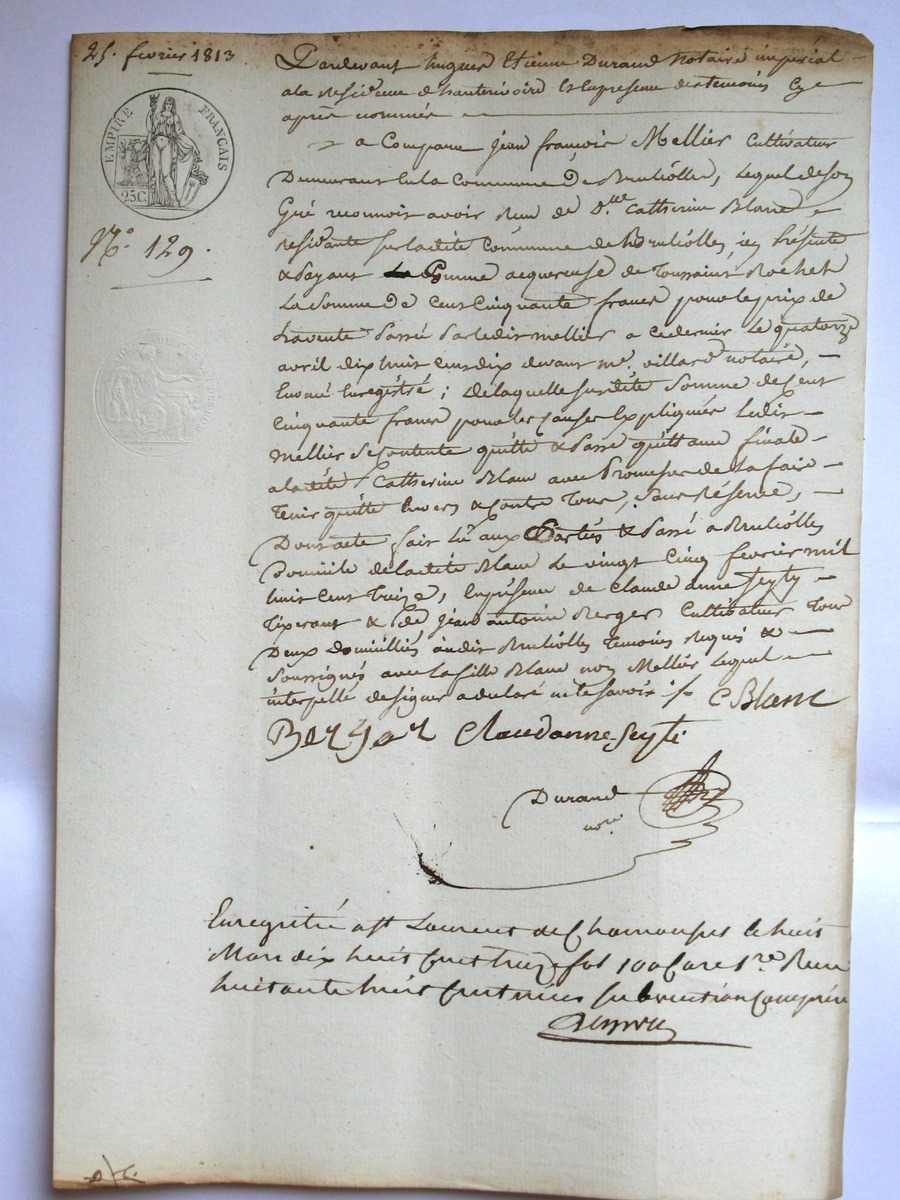 25. fevrier 1813
EMPIRE FRANÇAIS
25C
N.° 129.
Pardevant hugues Etienne Durand Notaire imperial
ala residence d'hauterivoire Et Enpresence destemoins Cy
après nommés
a Comparu jean françois Mellier Cultivateur
Demeurant Enla Commune De Bruliolles, Lequel deson
Gré reconnoit avoir Reçu de D.lle Catherine Blanc
residante surladite Commune de Brulliolles, icy Présente
& Payant Comme acquereuse de Toussaint Rochet
La Somme De Cent Cinquante francs pour le prix de
Lavente Passé Par ledit mellier a cedernier Le quatorze
avril dix huit cent dix devant me. villard notaire,
Enregistré ; Delaquelle susdite Somme de Cent
Cinquante francs pour les Causes Expliquées Ledit
Mellier SeContente quitte & Passe quittance finale
aladite Catherine Blanc avec Promesse de La faire
Tenir quitte Envers & Contre Tous, Sans Réserve,
Dont acte fait Lû aux Parties & Passé a Brulliolles
Domicile deladite Blanc Le vingt Cinq fevrier mil
huit Cent Treize, Enpresence de Claude anne Seyty
Tixerant & de jean antoine Berger Cultivateur Tous
Deux domiciliés audit Brulliolles Temoins Requis &
Soussignés avec La fille Blanc non Mellier Lequel
interpellé designer a declaré nele savoir ./. C Blanc
Berger Claudanne Seyti
Durand
nore
Enregistré a st Laurent de Chamousset le huit
Mars dix huit cent treize fol 100 Case 1.re Reçu
huitante huit Centimes subvention Comprise